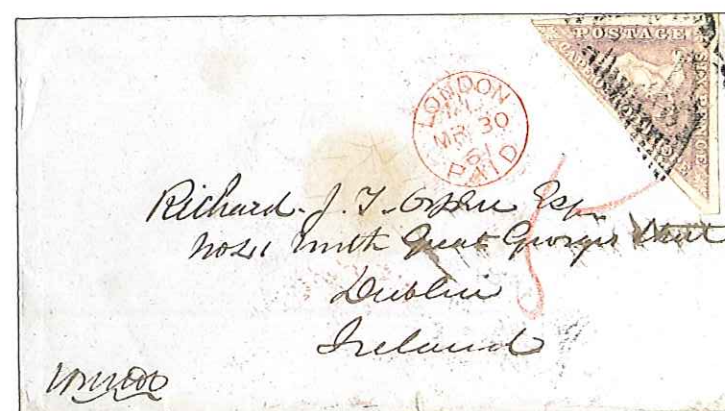 POSTAGE
SIX PENCE
LONDON
MR 30
61
PAID
Richard. J. T. Orpen Esqr
No 41 North Great Georges Street
Dublin
Ireland